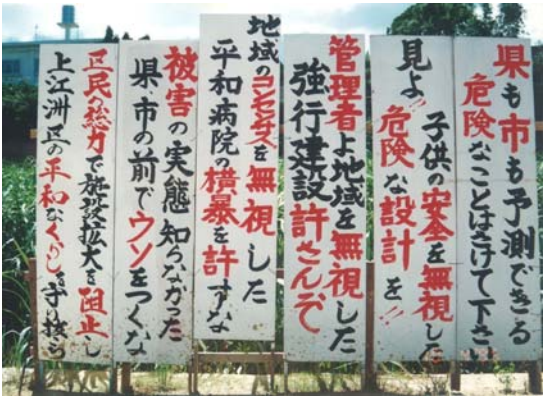 県も市も予測できる
危険なことはさけて下さい
子供の安全を無視した
見よ!!危険な設計を!!
管理者よ地域を無視した
強行建設許さんぞ
地域のコンセンサスを無視した
平和病院の横暴を許すな
被害の実態知らなかった
県市の前でウソをつくな
区民の総力で施設拡大を阻止し
上江洲区の平和なくらしを守り抜こう